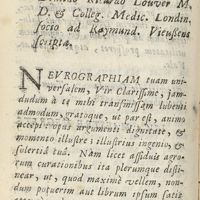 Ricardo Lower M.
D. & Colleg. Medic. Londin.
socio ad Raymund. Vieussens
scripta.
NEVROGRAPHIAM tuam uni-
versalem, Vir Clarissime, jam-
dudum à te mihi transmissam lubenti
admodum, gratoque, ut par est, animo
accepi opus argumenti dignitate, &
momento illustre; illustrius ingenio, &
solertiâ tuâ. Nam licet assiduis ægro-
rum curationibus ita plerumque disti-
near, ut, quod maximè vellem, non-
dum potuerim aut librum ipsum satis